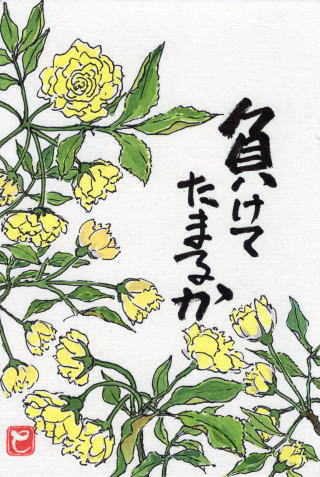 負けて
たまるか